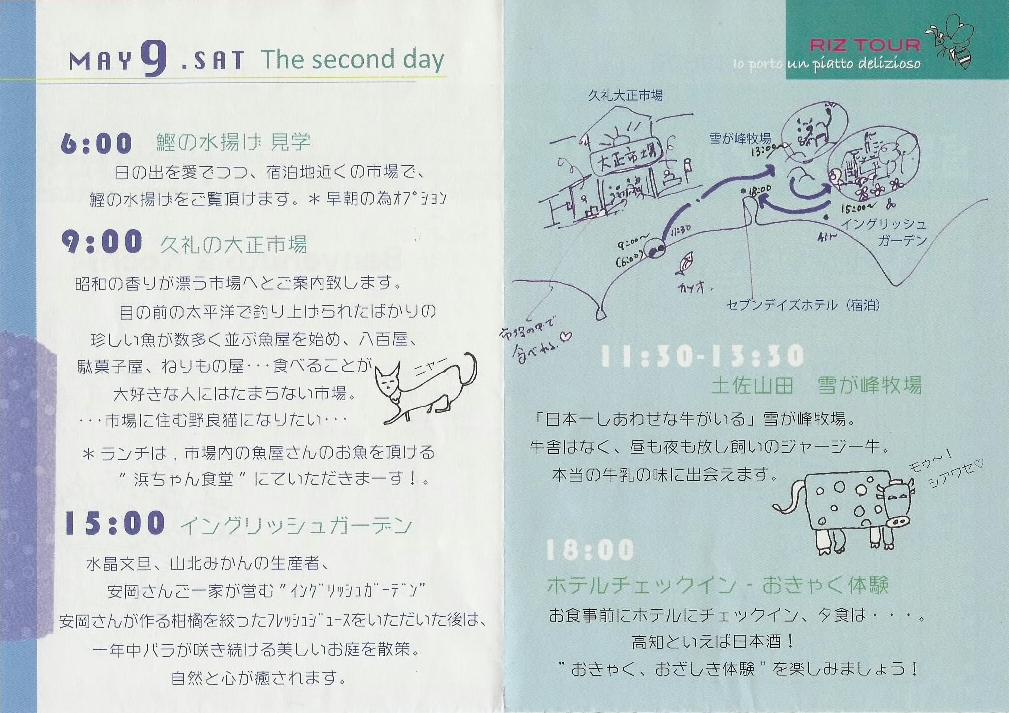 MAY 9 .SAT The second day
6:00 鰹の水揚げ 見学
日の出を愛でつつ、宿泊地近くの市場で、
鰹の水揚げをご覧頂けます。＊早朝の為ｵﾌﾟｼｮﾝ
9:00 久礼の大正市場
昭和の香りが漂う市場へとご案内致します。
目の前の太平洋で釣り上げられたばかりの
珍しい魚が数多く並ぶ魚屋を始め、八百屋、
駄菓子屋、ねりもの屋・・・食べることが
大好きな人にはたまらない市場。
・・・市場に住む野良猫になりたい・・・
ニャー
＊ランチは、市場内の魚屋さんのお魚を頂ける
“浜ちゃん食堂”にていただきまーす！。
15:00 イングリッシュガーデン
水晶文旦、山北みかんの生産者、
安岡さんご一家が営む“ｲﾝｸﾞﾘｯｼｭｶﾞｰﾃﾞﾝ”
安岡さんが作る柑橘を絞ったﾌﾚｯｼｭｼﾞｭｰｽをいただいた後は、
一年中バラが咲き続ける美しいお庭を散策。
自然と心が癒されます。
RIZ TOUR
Io porto un piatto delizioso
久礼大正市場
大正市場
雪が峰牧場
13:00~
18:00
15:00~
イングリッシュ
ガーデン
9:00~
(6:00)
11:30
カツオ.
セブンデイズホテル（宿泊）
市場の中で
食べれる♡
11:30-13:30
土佐山田 雪が峰牧場
「日本一しあわせな牛がいる」雪が峰牧場。
牛舎はなく、昼も夜も放し飼いのジャージー牛。
本当の牛乳の味に出会えます。
モゥ〜！
シアワセ♡
18:00
ホテルチェックイン - おきゃく体験
お食事前にホテルにチェックイン、夕食は・・・。
高知といえば日本酒！
“おきゃく、おざしき体験”を楽しみましょう！